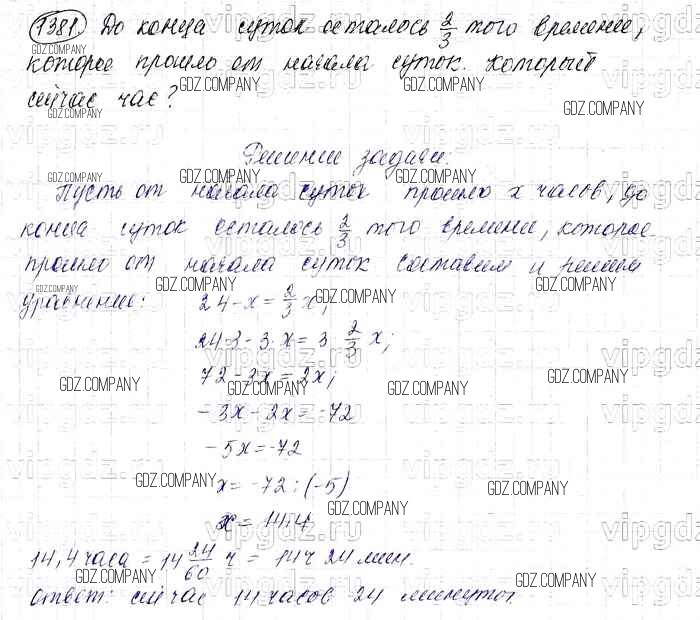 1381. До конца суток осталось 2/3 того времени,
которое прошло от начала суток. Который
сейчас час?
Решение задачи.
Пусть от начала суток прошло x часов, до
конца суток осталось 2/3 того времени, которое
прошло от начала суток составим и решим
уравнение: 24-x=2/3 x;
24·3-3·x=3·2/3 x;
72-3x=2x;
-3x-2x=-72
-5x=-72
x=-72:(-5)
x=14,4
14,4 часа = 14 24/60 ч = 14ч 24 мин.
Ответ: сейчас 14 часов 24 минуты.